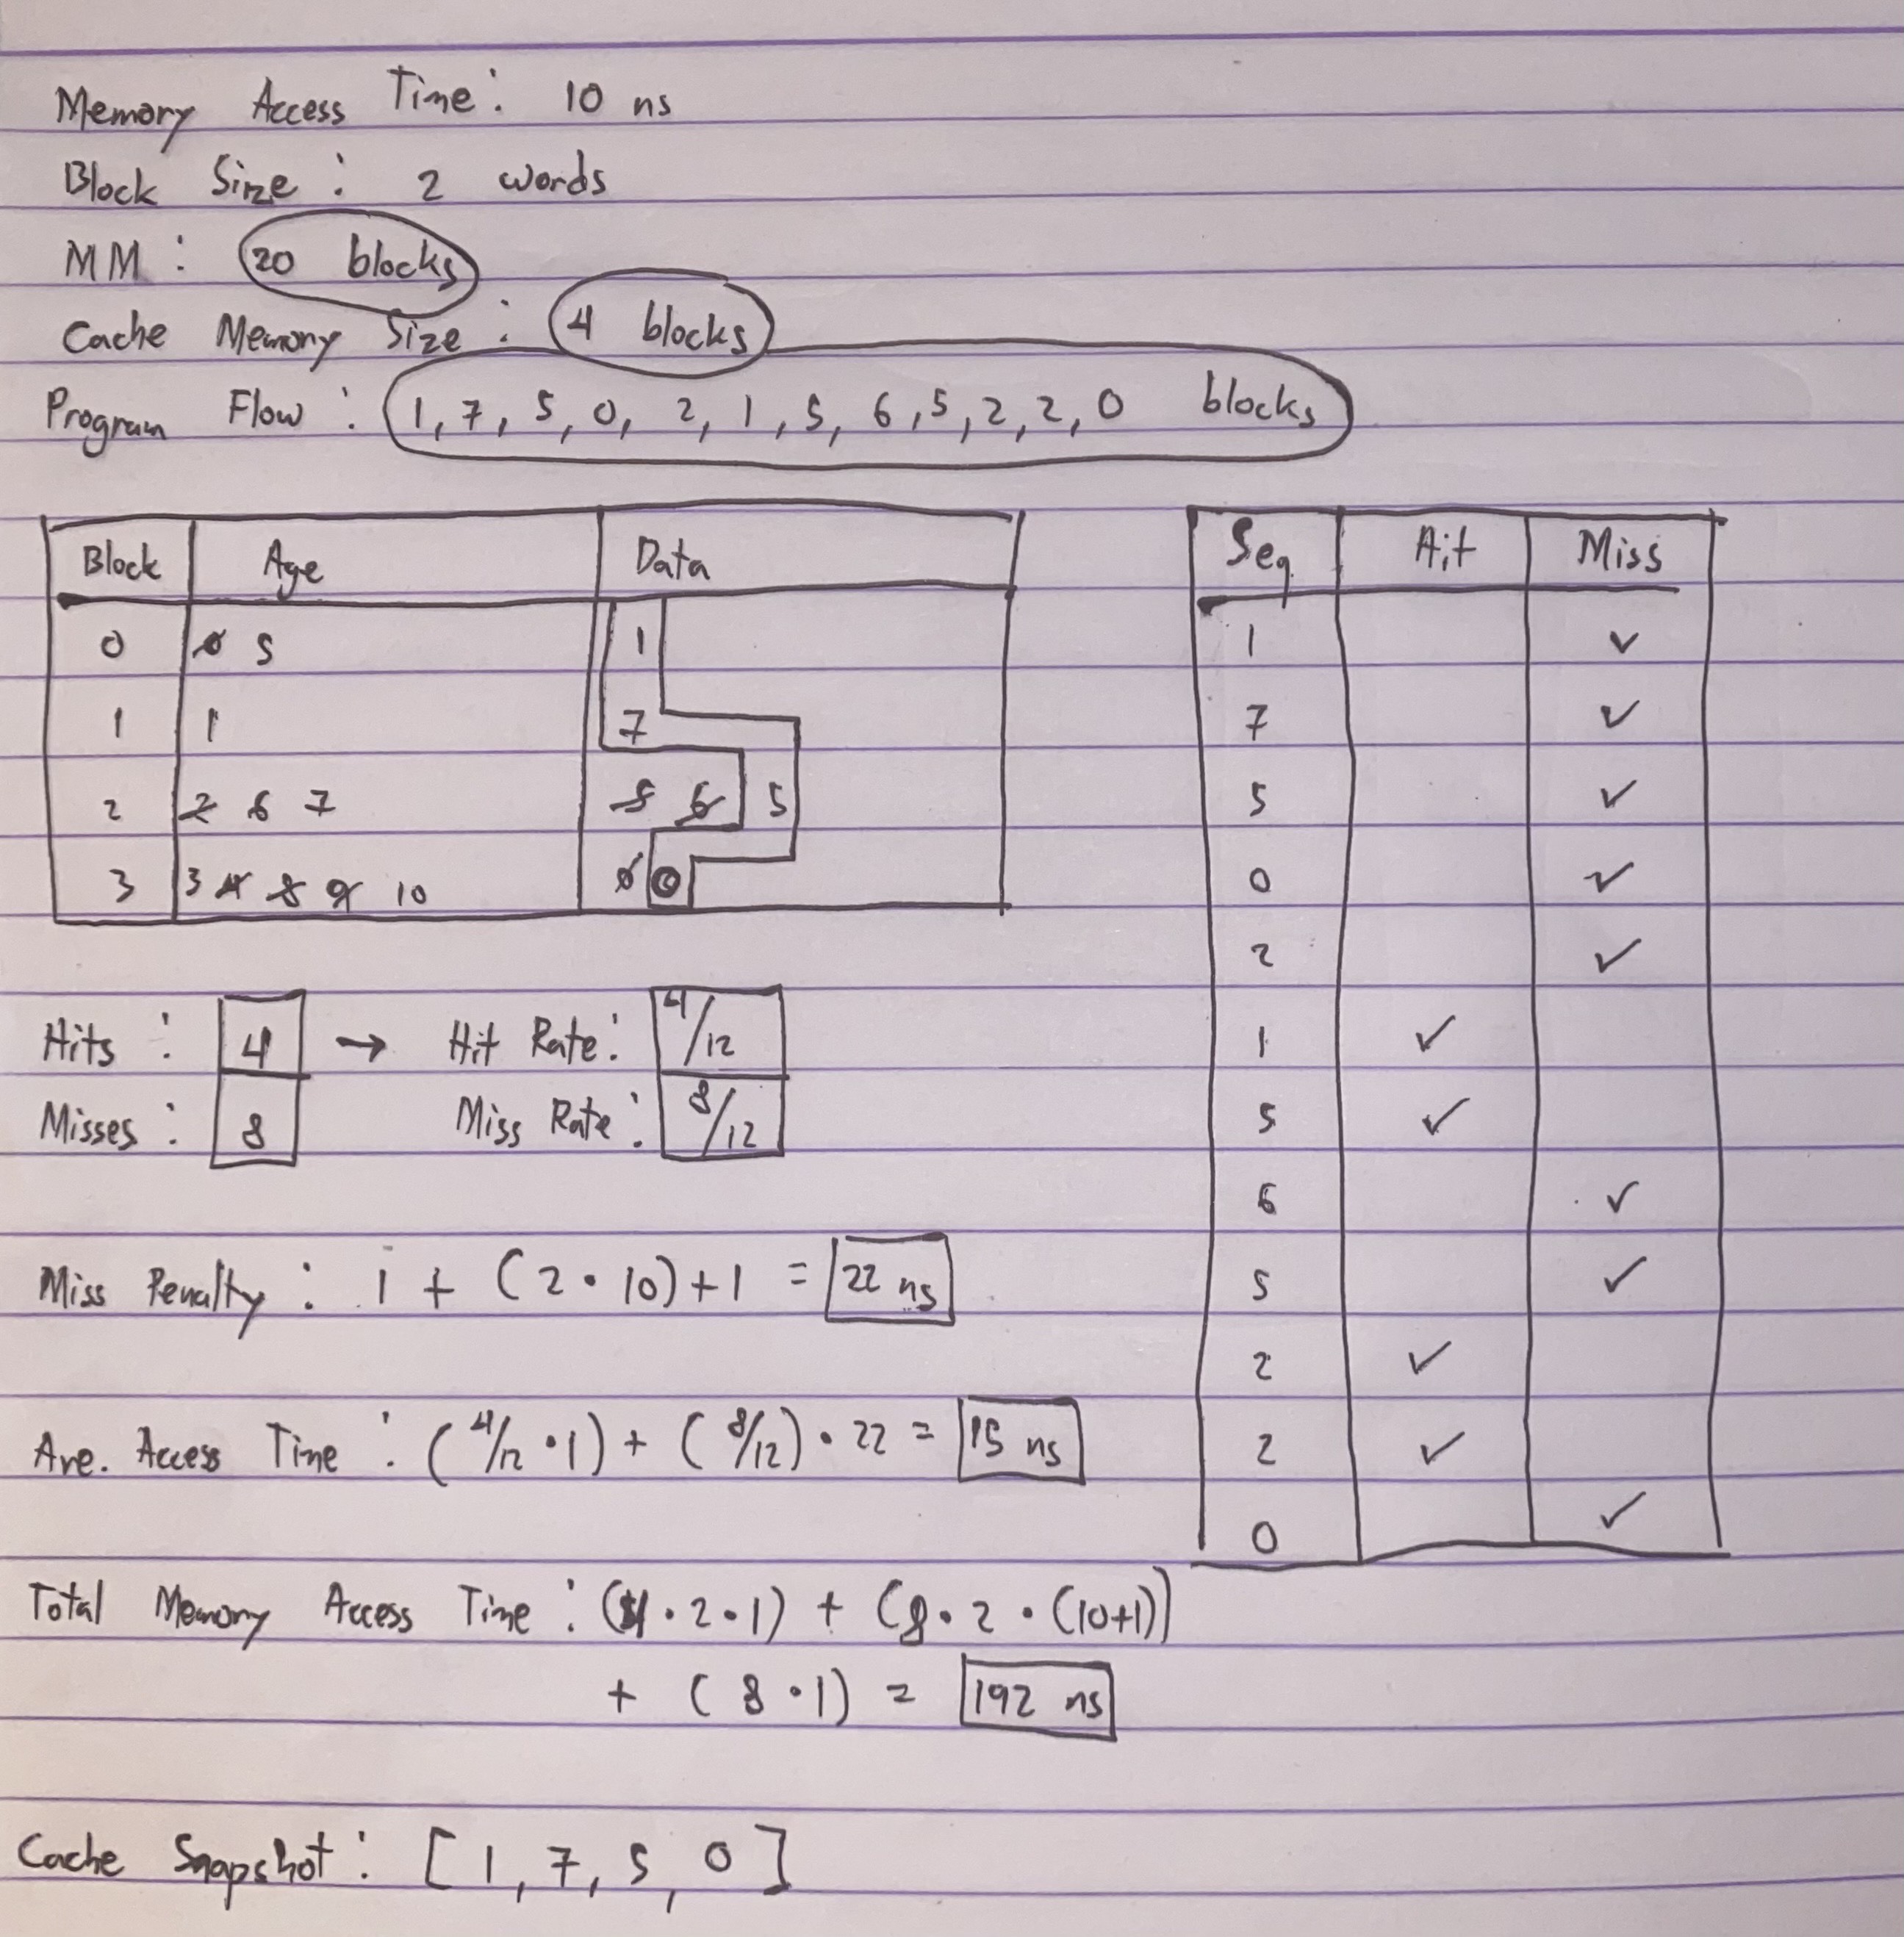 Memory Access Time: 10 ns
Block Size: 2 words
MM: 20 blocks
Cache Memory Size: 4 blocks
Program Flow: 1, 7, 5, 0, 2, 1, 5, 6, 5, 2, 2, 0 blocks
Block Age Data
0 0 5 1
1 1 7
2 2 6 7 5 6 5
3 3 4 8 9 10 0 0
Hits: 4 → Hit Rate: 4/12
Misses: 8 Miss Rate: 8/12
Miss Penalty: 1 + (2 · 10) + 1 = 22 ns
Ave. Access Time: (4/12 · 1) + (8/12) · 22 = 15 ns
Total Memory Access Time: (4 · 2 · 1) + (8 · 2 · (10+1))
+ (8 · 1) = 192 ns
Cache Snapshot: [1, 7, 5, 0]
Seq Hit Miss
1 ✓
7 ✓
5 ✓
0 ✓
2 ✓
1 ✓
5 ✓
6 ✓
5 ✓
2 ✓
2 ✓
0 ✓